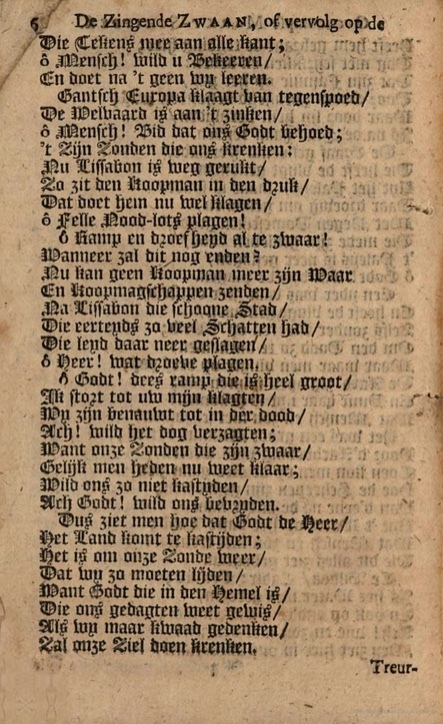 6 De Zingende ZWAAN, of vervolg op de
Die Tekens mee aan alle kant;
ô Mensch! wild u Bekeeren/
En doet na 't geen wy leeren.
Gantsch Europa klaagt van tegenspoed/
De Welvaard is aan 't zinken/
ô Mensch! Bid dat ons Godt behoed;
't Zijn Zonden die ons krenken:
Nu Lissabon is weg gerukt/
Zo zit den Koopman in den druk/
Dat doet hem nu wel klagen/
ô Felle Nood-lots plagen!
ô Ramp en droefheyd al te zwaar!
Wanneer zal dit nog enden?
Nu kan geen Koopman meer zijn Waar
En Koopmagschappen zenden/
Na Lissabon die schoone Stad/
Die eertyds zo veel Schatten had/
Die leyd daar neer geslagen/
ô Heer! wat droeve plagen.
ô Godt! dees ramp die is heel groot/
Ik stort tot uw mijn klagten/
Wy zijn benauwt tot in der dood/
Ach! wild het dog verzagten;
Want onze Zonden die zijn zwaar/
Gelijk men heden nu weet klaar;
Wild ons zo niet kastyden/
Ach Godt! wild ons bevryden.
Dus ziet men hoe dat Godt de Heer/
Het Land komt te kastijden;
Het is om onze Zonde weer/
Dat wy zo moeten lijden/
Want Godt die in den Hemel is/
Die ons gedagten weet gewis/
Als wy maar kwaad gedenken/
Zal onze Ziel doen krenken.
Treur-